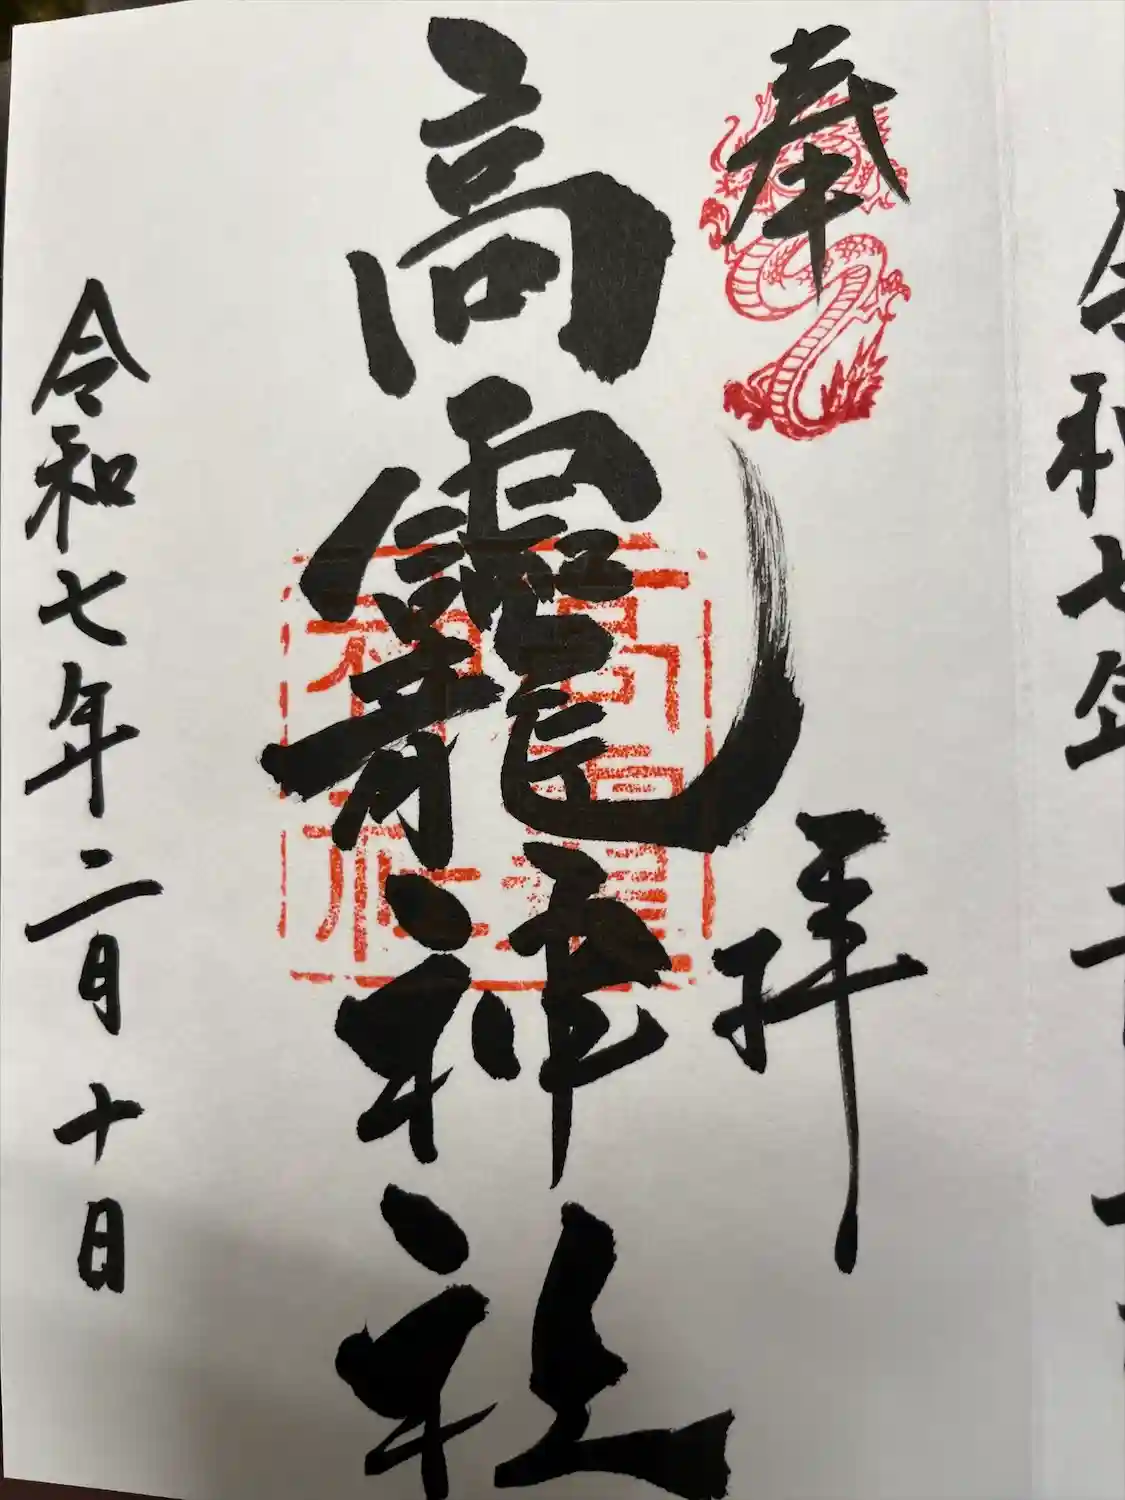 令和七年二
奉拝
高龗神社
令和七年二月十日